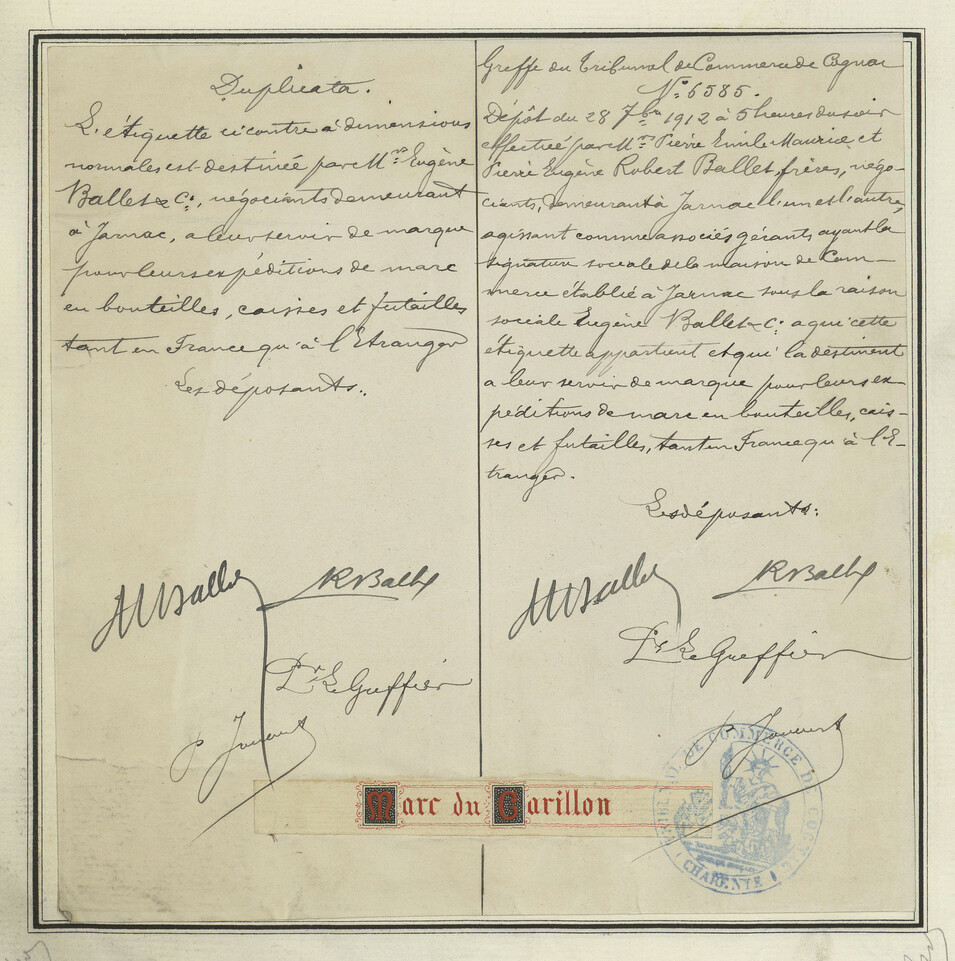 Duplicata.
L'étiquette ci contre à dimensions
normales est destinée par M.rs Eugène
Ballet & Cie, négociants demeurant
à Jarnac, a leur servir de marque
pour leurs expéditions de marc
en bouteilles, caisses et futailles
tant en France qu'à l'Etranger
Les déposants:
MBallet
RBallet
Pr Le Greffier
Greffe du Tribunal de Commerce de Cognac
No 6585.
Dépôt du 28 7bre 1912 à 5 heures du soir
effectuée par M.rs Pierre Emile Maurice et
Pierre Eugène Robert Ballet, frères, négo-
ciants, demeurant à Jarnac l'un et l'autre,
agissant comme associés gérants ayant la
signature sociale de la maison de Com-
merce établie à Jarnac sous la raison
sociale Eugène Ballet & Cie a qui cette
étiquette appartient et qui la destinent
a leur servir de marque pour leurs ex-
péditions de marc en bouteilles, cais-
ses et futailles, tant en France qu'à l'E-
tranger.
Les déposants:
MBallet
RBallet
Pr Le Greffier
Marc du Carillon
TRIBUNAL DE COMMERCE DE COGNAC
(CHARENTE)